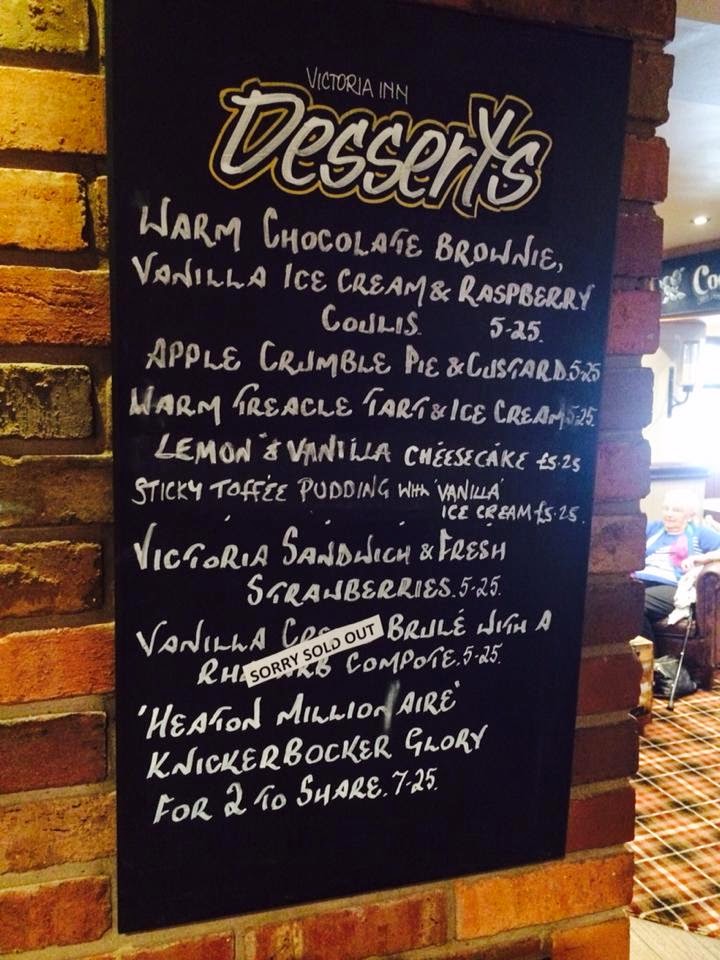 VICTORIA INN
Desserts
WARM CHOCOLATE BROWNIE,
VANILLA ICE CREAM & RASPBERRY
COULIS. 5-25.
APPLE CRUMBLE PIE & CUSTARD.5-25
WARM TREACLE TART & ICE CREAM 5-25.
LEMON & VANILLA CHEESECAKE £5.25
STICKY TOFFEE PUDDING WITH 'VANILLA'
ICE CREAM £5.25.
VICTORIA SANDWICH & FRESH
STRAWBERRIES. 5-25.
VANILLA BRULÉ WITH A
SORRY SOLD OUT
COMPOTE. 5-25.
'HEATON MILLIONAIRE'
KNICKERBOCKER GLORY
FOR 2 TO SHARE. 7-25.